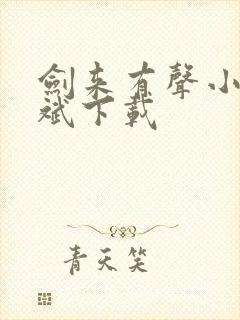 劍来有聲小
斌下載
青天笑